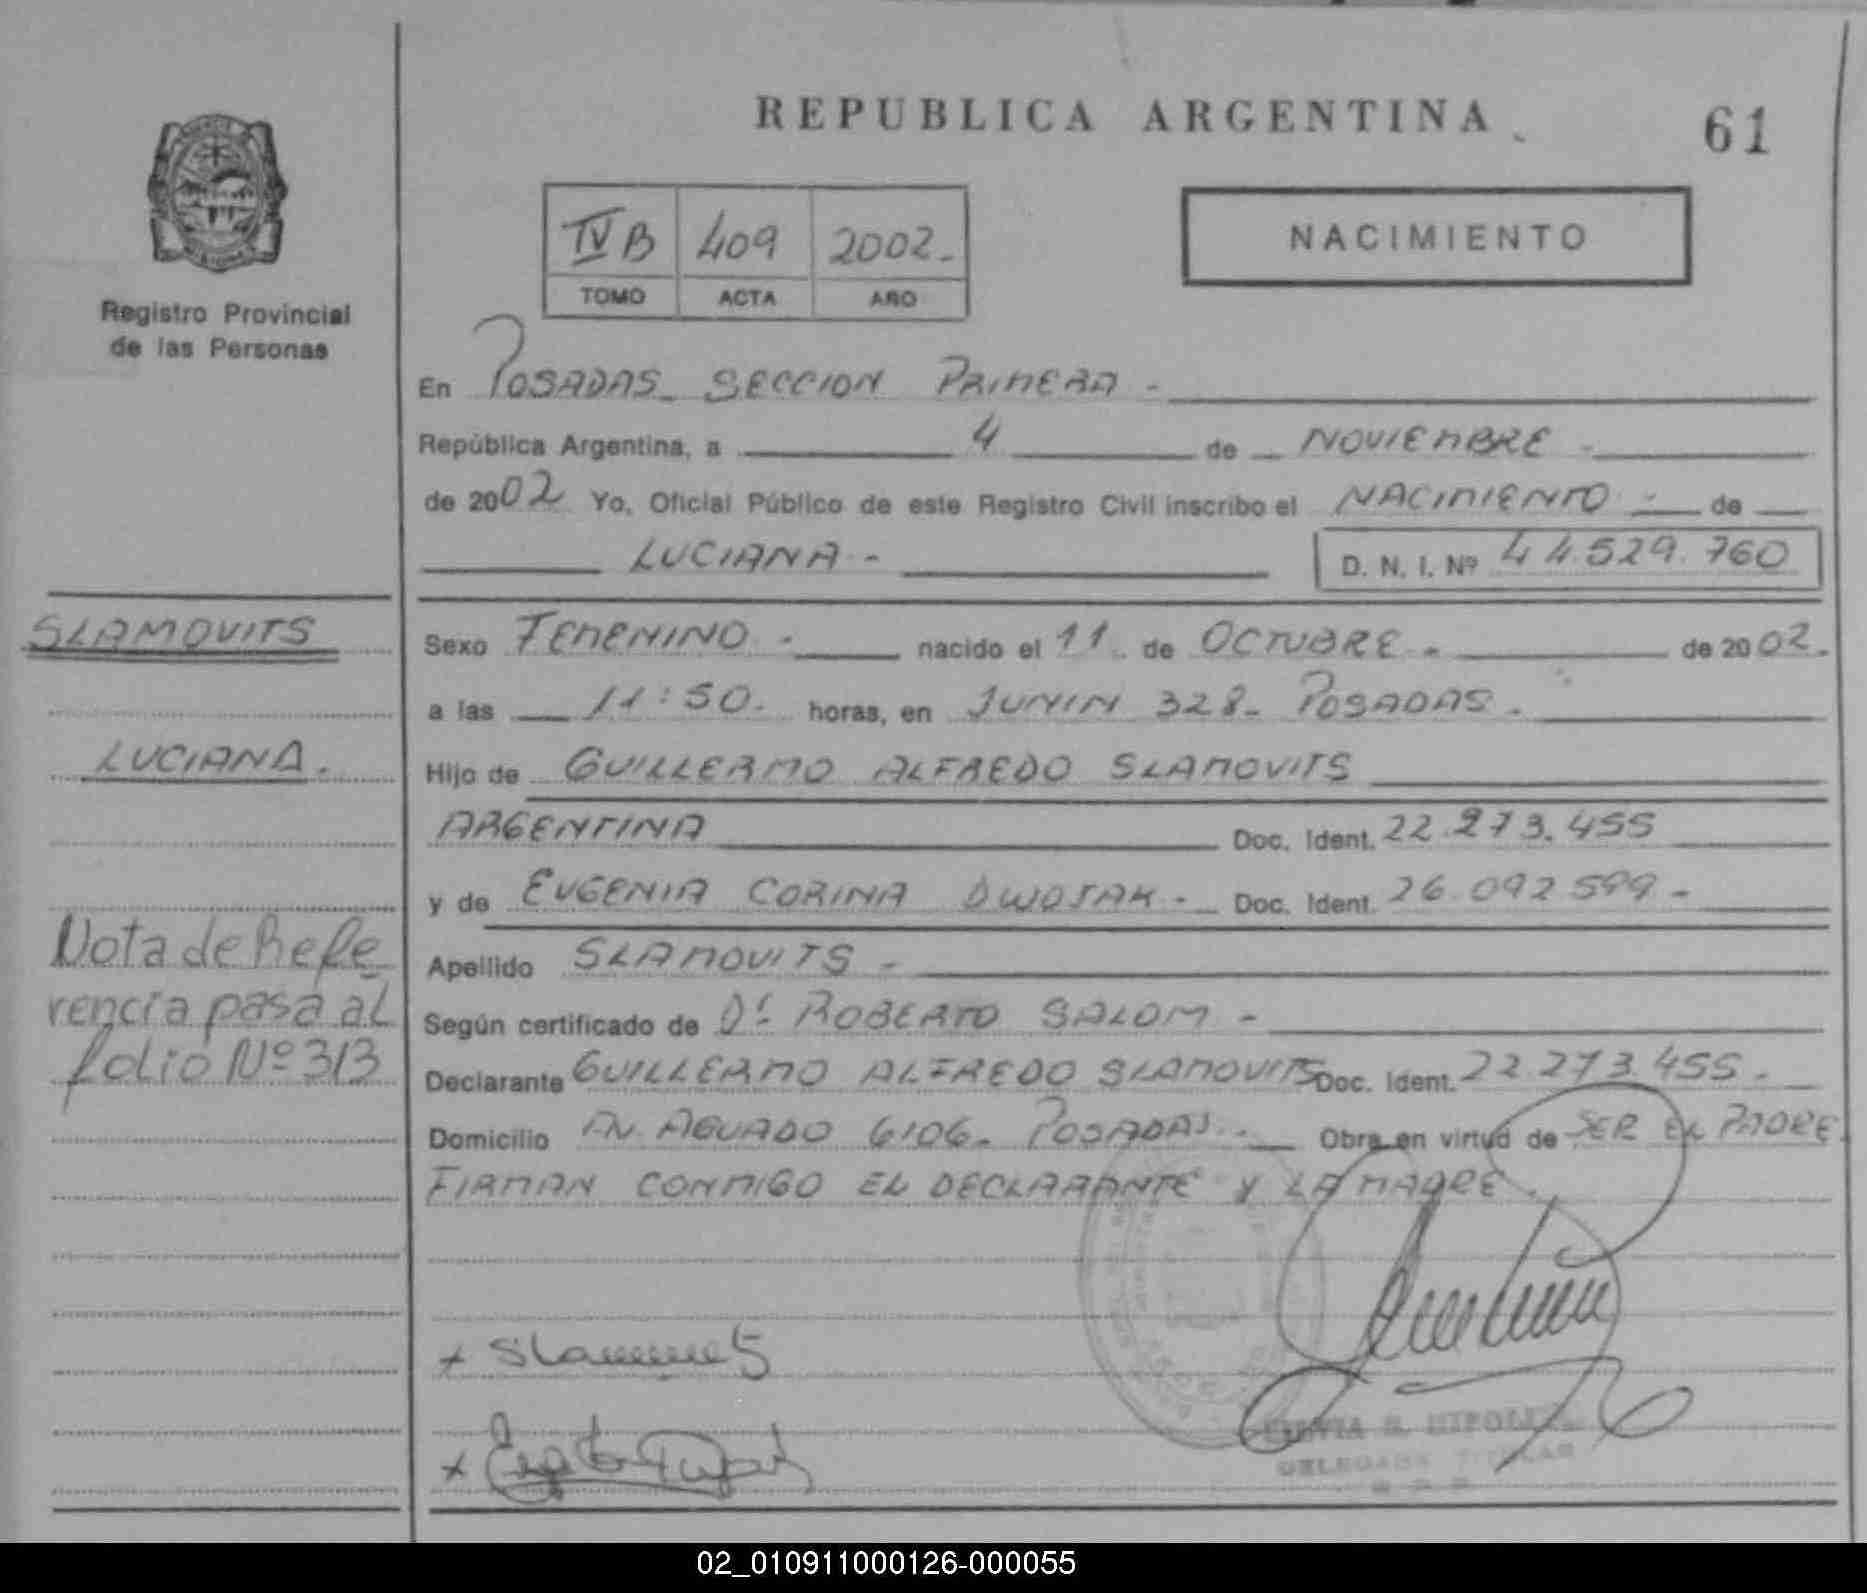 REPUBLICA ARGENTINA
61
IV B 409 2002.-
TOMO ACTA AÑO
NACIMIENTO
Registro Provincial
de las Personas
En POSADAS SECCION PRIMERA -
República Argentina, a 4 de NOVIEMBRE -
de 2002 Yo, Oficial Público de este Registro Civil inscribo el NACIMIENTO - de
LUCIANA - D. N. I. Nº 44.529.760
SLAMOVITS
Sexo FEMENINO - nacido el 11 de OCTUBRE - de 2002.
a las 11:50. horas, en JUNIN 328- POSADAS -
LUCIANA.
Hijo de GUILLERMO ALFREDO SLAMOVITS
ARGENTINA Doc. Ident. 22.273.455
y de EUGENIA CORINA DWOJAK - Doc. Ident. 26.092.599 -
Nota de Refe
rencia pasa al
folio Nº 313
Apellido SLAMOVITS -
Según certificado de Dr. ROBERTO SALOM -
Declarante GUILLERMO ALFREDO SLAMOVITS Doc. Ident. 22.273.455 -
Domicilio AV. AGUADO 6106- POSADAS - Obra en virtud de SER EL PADRE
FIRMAN CONMIGO EL DECLARANTE Y LA MADRE.
02_010911000126-000055